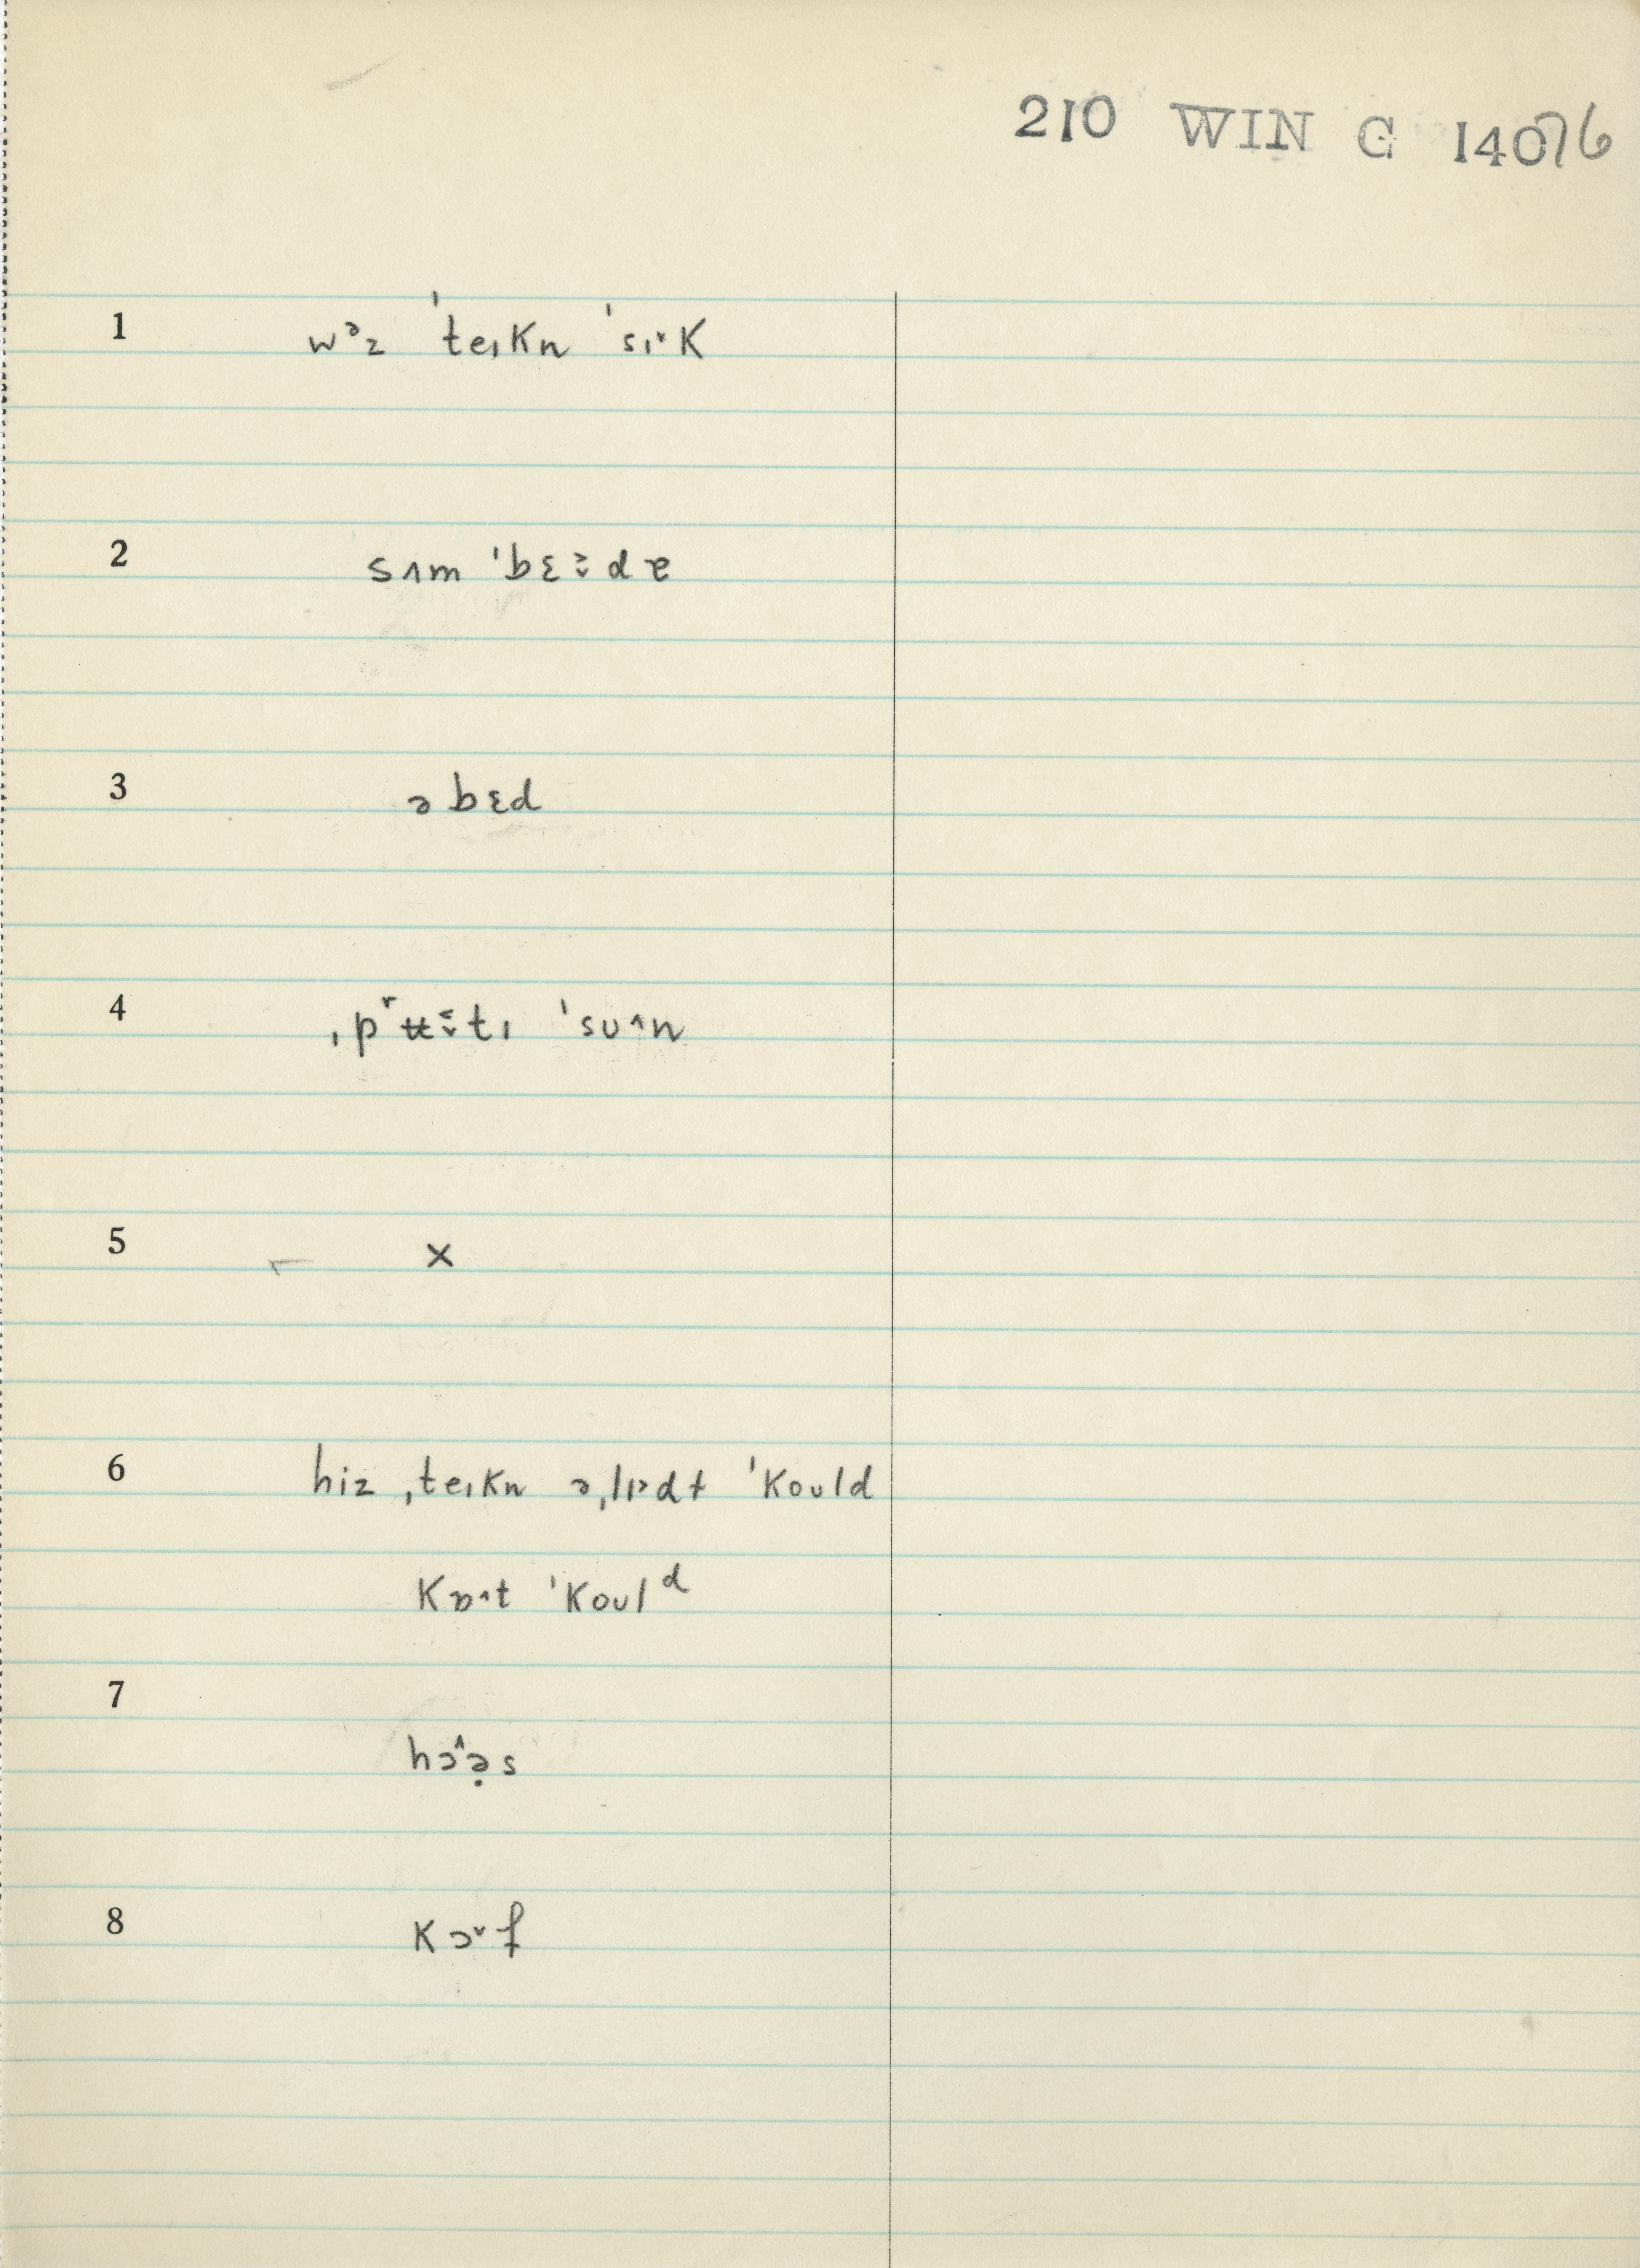 210 WIN G 14076
1 wᵊz ˈteɪkn ˈsɪ˅k
2 sʌm ˈbɛ˃̬də
3 ə bɛd
4 ˌpʳʉ˂̬tɪ ˈsu˄n
5 x
6 hiz ˌteɪkn əˌlɪ˃dɫ ˈkould
kɒ˄t ˈkoulᵈ
7
hɔ˄ə̣s
8 kɔ˅f